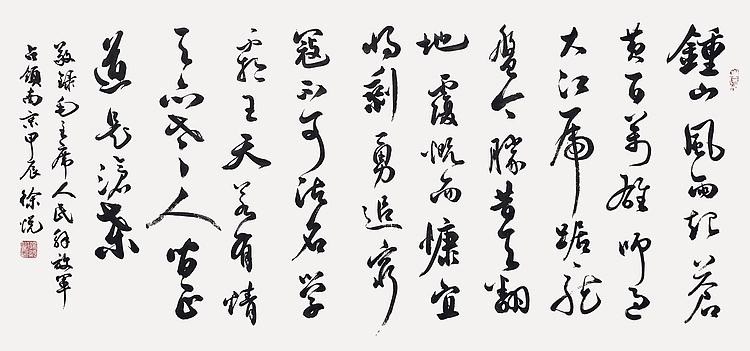 鍾山風雨起蒼
黄百萬雄師过
大江虎踞龙
盤今勝昔天翻
地覆慨而慷宜
将剩勇追窮
寇不可沽名学
霸王天若有情
天亦老人间正
道是滄桑
敬録毛主席人民解放軍
占領南京甲辰徐悦